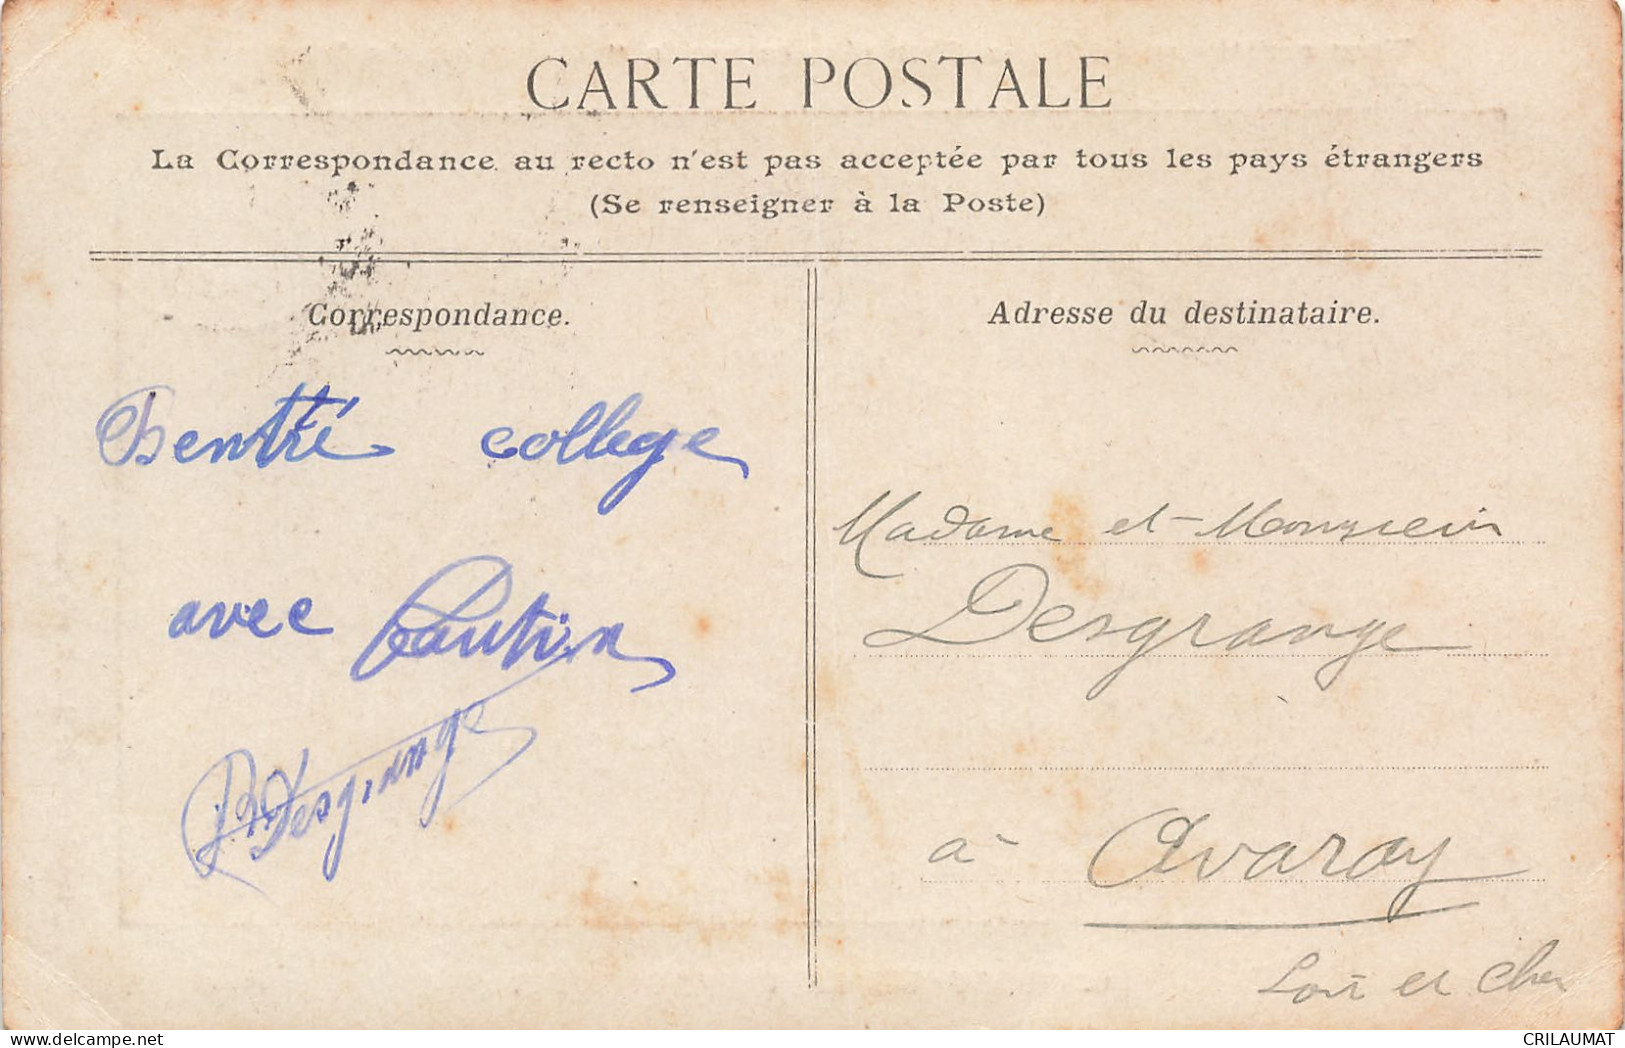 CARTE POSTALE
La Correspondance au recto n'est pas acceptée par tous les pays étrangers
(Se renseigner à la Poste)
Correspondance.
Rentré college
avec
Desgrange
Adresse du destinataire.
Madame et Monsieur
Desgrange
à Avaray
Loir et Cher
www.delcampe.net
CRILAUMAT